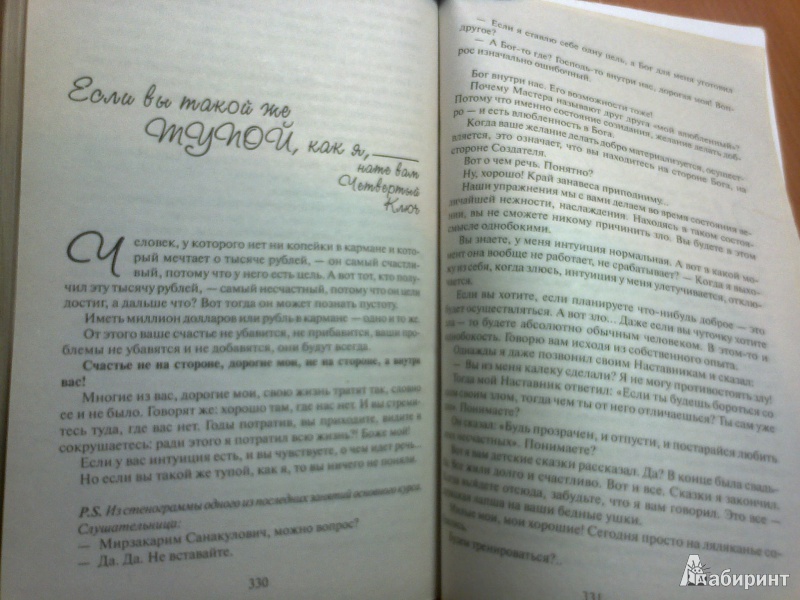 Если вы такой же
ТУПОЙ, как я,
нате вам
Четвертый
Ключ
Человек, у которого нет ни копейки в кармане и кото-
рый мечтает о тысяче рублей, — он самый счастли-
вый, потому что у него есть цель. А вот тот, кто полу-
чил эту тысячу рублей, — самый несчастный, потому что он цели
достиг, а дальше что? Вот тогда он может познать пустоту.
Иметь миллион долларов или рубль в кармане — одно и то же.
От этого ваше счастье не убавится, не прибавится, ваши про-
блемы не убавятся и не добавятся, они будут всегда.
Счастье не на стороне, дорогие мои, не на стороне, а внутри
вас!
Многие из вас, дорогие мои, свою жизнь тратят так, словно
ее и не было. Говорят же: хорошо там, где нас нет. И вы стреми-
тесь туда, где вас нет. Годы потратив, вы приходите, видите и
сокрушаетесь: ради этого я потратил всю жизнь?! Боже мой!
Если у вас интуиция есть, и вы чувствуете, о чем идет речь...
Но если вы такой же тупой, как я, то вы ничего не поняли.
P.S. Из стенограммы одного из последних занятий основного курса.
Слушательница:
— Мирзакарим Санакулович, можно вопрос?
— Да. Да. Не вставайте.
330
— Если я ставлю себе одну цель, а Бог для меня уготовил
другое?
— А Бог-то где? Господь-то внутри нас, дорогая моя! Воп-
рос изначально ошибочный.
Бог внутри нас. Его возможности тоже!
Почему Мастера называют друг друга «мой влюбленный»?
Потому что именно состояние созидания, желание делать доб-
ро — и есть влюбленность в Бога.
Когда ваше желание делать добро материализуется, осущест-
вляется, это означает, что вы находитесь на стороне Бога, на
стороне Создателя.
Вот о чем речь. Понятно?
Ну, хорошо! Край занавеса приподниму...
Наши упражнения мы с вами делаем во время состояния ве-
личайшей нежности, наслаждения. Находясь в таком состоя-
нии, вы не сможете никому причинить зло. Вы будете в этом
смысле однобокими.
Вы знаете, у меня интуиция нормальная. А вот в какой мо-
мент она вообще не работает, не срабатывает? — Когда я выхо-
жу из себя, когда злюсь, интуиция у меня улетучивается, отклю-
Если вы хотите, если планируете что-нибудь доброе — это
будет осуществляться. А вот зло... Даже если вы чуточку хотите
— то будете абсолютно обычным человеком. В этом-то и
однобокость. Говорю вам исходя из собственного опыта.
Однажды я даже позвонил своим Наставникам и сказал:
— Вы из меня калеку сделали? Я не могу противостоять злу!
Тогда мой Наставник ответил: «Если ты будешь бороться со
злом, тогда чем ты от него отличаешься? Ты сам уже
Понимаете?
Он сказал: «Будь прозрачен, и отпусти, и постарайся любить
несчастных». Понимаете?
вам детские сказки рассказал. Да? В конце была свадь-
жили долго и счастливо. Вот и все. Сказки я закончил.
выйдете отсюда, забудьте, что я вам говорил. Это все —
лапша на ваши бедные ушки.
мои, мои хорошие! Сегодня просто на ляляканье со-
тренироваться?..
331
Лабиринт